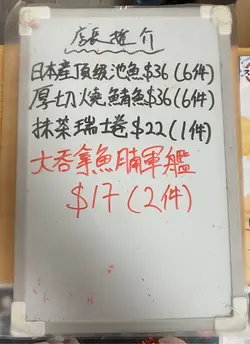 店長推介
日本產頂級池魚$36(6件)
厚切燒鯖魚$36(6件)
抹茶瑞士卷$22(1件)
大吞拿魚腩軍艦
$17(2件)